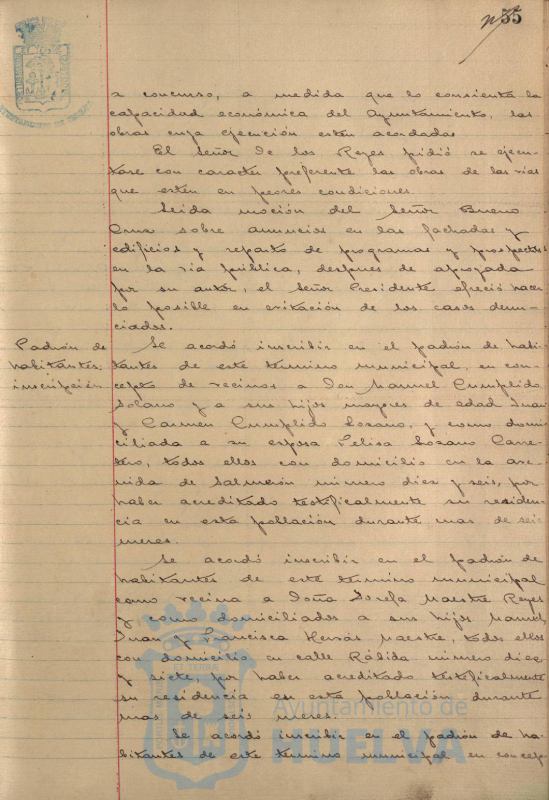 nº 35
a concurso, a medida que lo consienta la
capacidad económica del Ayuntamiento, las
obras cuya ejecución estén acordadas
El Señor de los Reyes pidió se ejecu-
tase con caracter preferente las obras de las vias
que estén en peores condiciones.
Leida moción del Señor Bueno
Cruz sobre anuncios en las fachadas y
edificios y reparto de programas y prospectos
en la via pública, despues de apoyada
por su autor, el Señor Presidente ofreció hacer
lo posible en evitación de los casos denun-
ciados.
Padrón de
habitantes;
inscripción
Se acordó inscribir en el padrón de habi-
tantes de este término municipal, en con-
cepto de vecinos a Don Manuel Cumplido
Solano y a sus hijos mayores de edad Juan
y Carmen Cumplido Lozano, y como domi-
ciliada a su esposa Felisa Lozano Carre-
tero, todos ellos con domicilio en la ave-
nida de Salmerón número diez y seis, por
haber acreditado testificalmente su residen-
cia en esta población durante mas de seis
meses.
Se acordó inscribir en el padrón de
habitantes de este término municipal
como vecina a Doña Josefa Maestre Reyes
y como domiciliados a sus hijos Manuel,
Juan y Francisca Hervás Maestre, todos ellos
con domicilio en calle Rábida número diez
y siete, por haber acreditado testificalmente
su residencia en esta población durante
mas de seis meses.
Se acordó inscribir en el padrón de ha-
bitantes de este término municipal en concep-
Ayuntamiento de
HUELVA